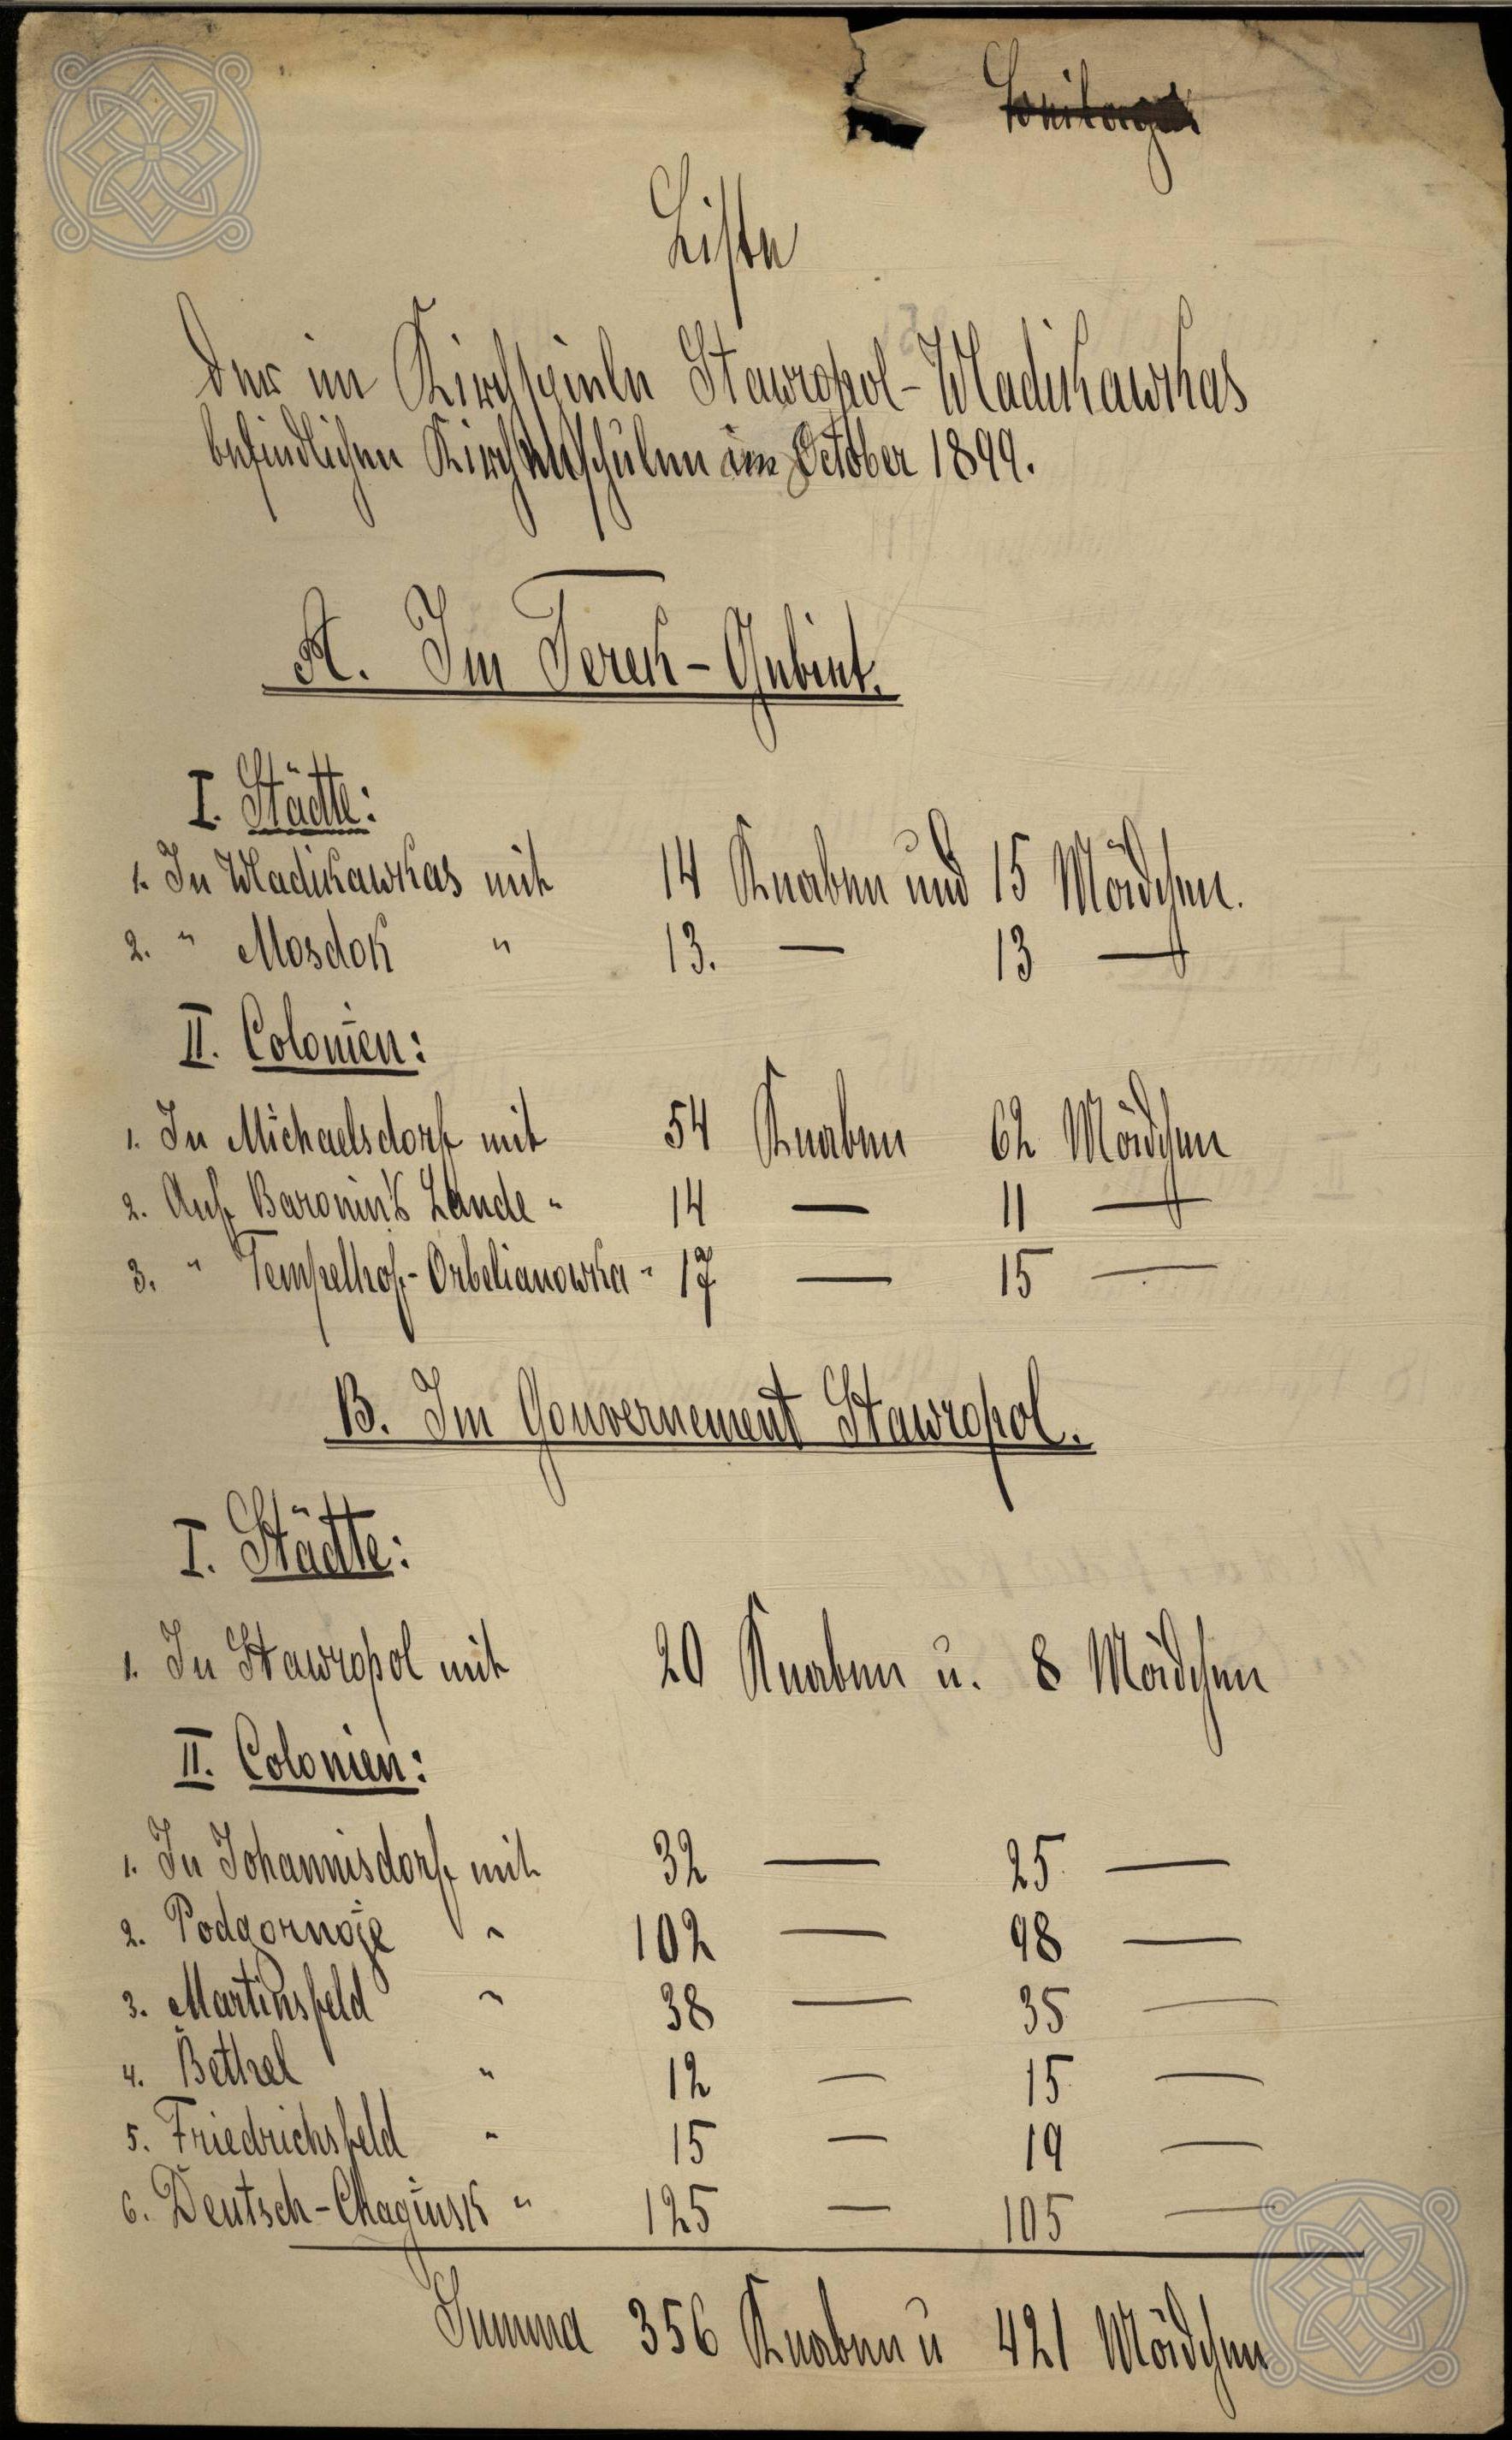 Liste
der im Kirchspiele Stawropol-Wladikawkas
befindlichen Kirchenschulen im October 1899.
A. Im Terek-Gebiet.
I. Städte:
1. In Wladikawkas mit 14 Knaben und 15 Mädchen.
2. " Mosdok " 13. — 13 —
II. Colonien:
1. In Michaelsdorf mit 54 Knaben 62 Mädchen
2. Auf Baronin's Lande " 14 — 11 —
3. " Tempelhof-Orbelianowka " 17 — 15 —
B. Im Gouvernement Stawropol.
I. Städte:
1. In Stawropol mit 20 Knaben u. 8 Mädchen
II. Colonien:
1. In Johannisdorf mit 32 — 25 —
2. Podgornoje " 102 — 98 —
3. Martinsfeld " 38 — 35 —
4. Bethel " 12 — 15 —
5. Friedrichsfeld " 15 — 19 —
6. Deutsch-Chaginsk " 125 — 105 —
Summa 356 Knaben u 421 Mädchen